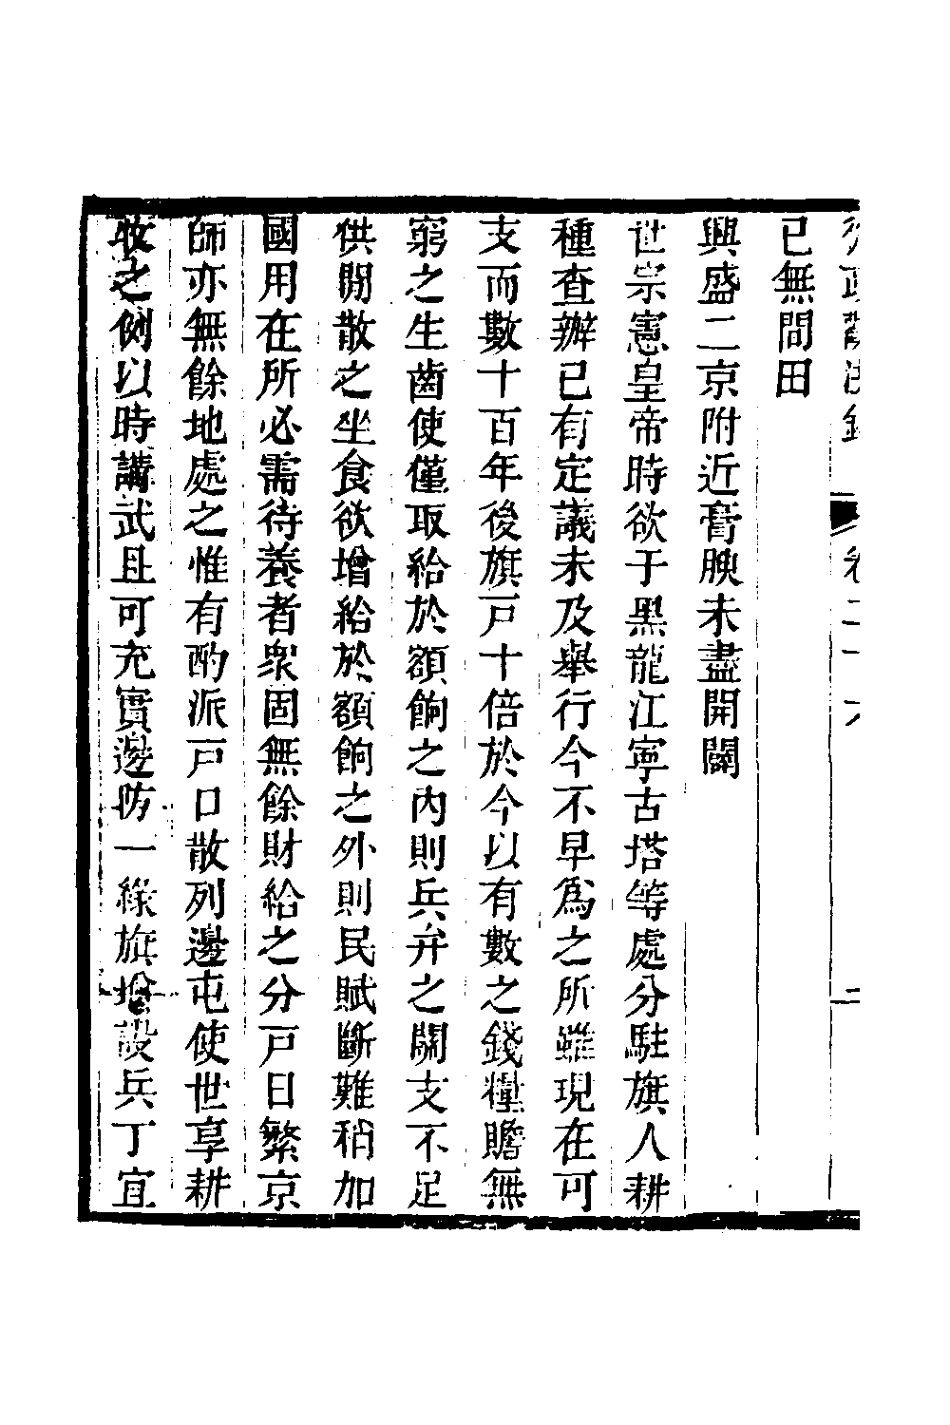 從政觀法錄 卷二十六 二
已無間田
興盛二京附近膏腴未盡開闢
世宗憲皇帝時欲于黑龍江寧古塔等處分駐旗人耕
種查辦已有定議未及舉行今不早爲之所雖現在可
支而數十百年後旗戸十倍於今以有數之錢糧贍無
窮之生齒使僅取給於額餉之內則兵弁之關支不足
供閒散之坐食欲增給於額餉之外則民賦斷難稍加
國用在所必需待養者衆固無餘財給之分戸日繁京
師亦無餘地處之惟有酌派戸口散列邊屯使世享耕
牧之側以時講武且可充實邊防一綠旗增設兵丁宜